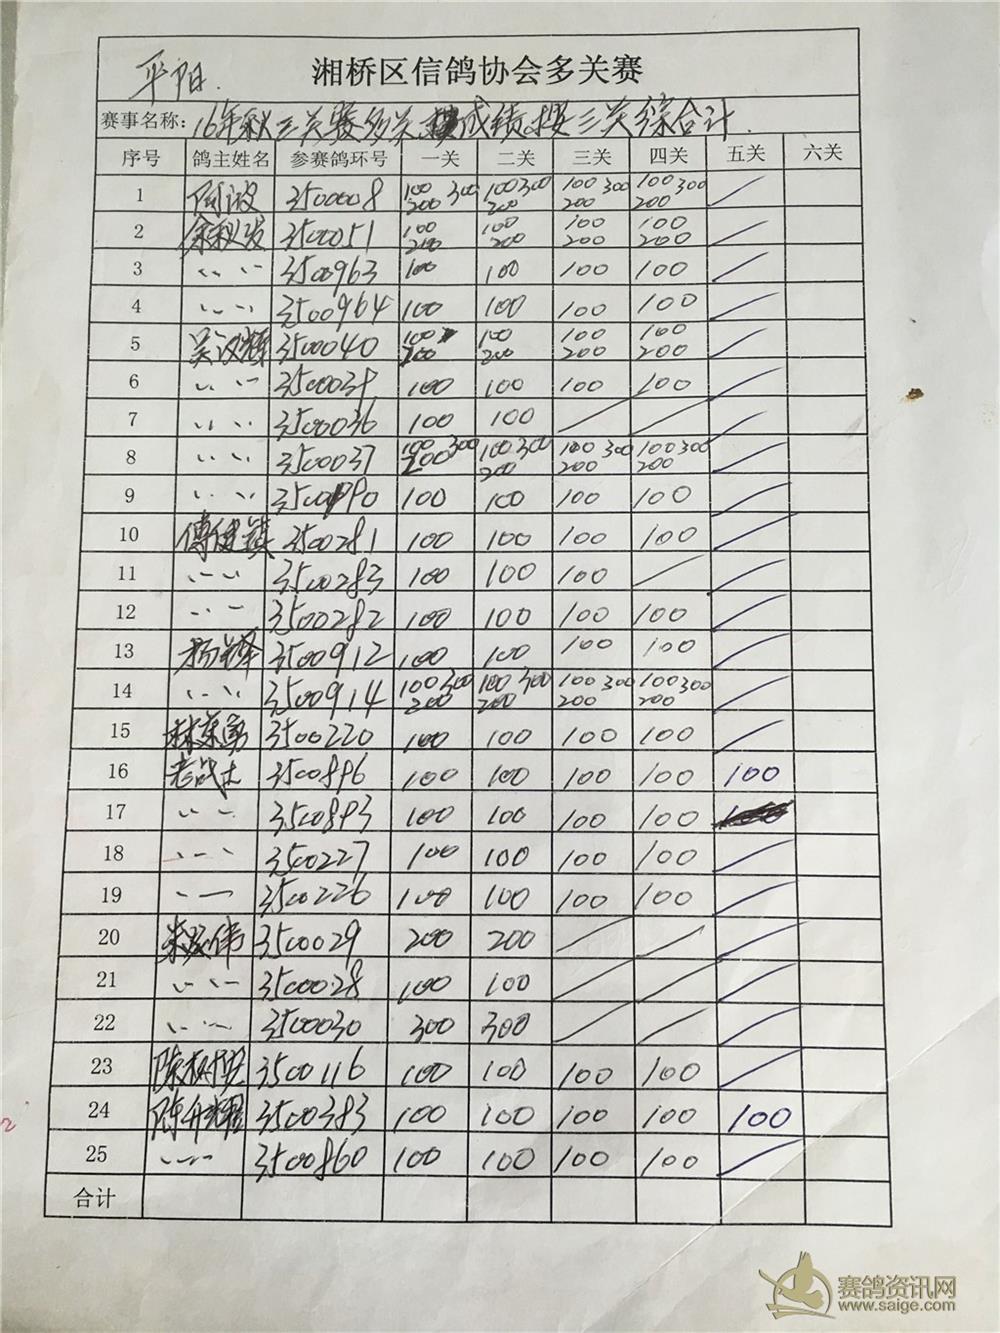 平阳.
湘桥区信鸽协会多关赛
赛事名称: 16年秋三关赛多关 成绩按三关综合计.
序号 鸽主姓名 参赛鸽环号 一关 二关 三关 四关 五关 六关
1 3500008 100 200 300 100 200 300 100 200 300 100 200 300
2 3500051 100 200 100 200 100 200 100 200
3 〃 〃 3500963 100 100 100 100
4 〃 〃 3500964 100 100 100 100
5 吴汉 3500040 100 200 100 200 100 200 100 200
6 〃 〃 3500039 100 100 100 100
7 〃 〃 3500036 100 100
8 〃 〃 3500037 100 200 300 100 200 300 100 200 300 100 200 300
9 〃 〃 100 100 100 100
10 傅健镇 3500281 100 100 100 100
11 〃 〃 3500283 100 100 100
12 〃 〃 3500282 100 100 100 100
13 杨 3500912 100 100 100 100
14 〃 〃 3500914 100 200 300 100 200 300 100 200 300 100 200 300
15 林东勇 3500220 100 100 100 100
16 老战士 3500896 100 100 100 100 100
17 〃 〃 3500893 100 100 100 100
18 〃 〃 3500227 100 100 100 100
19 〃 〃 3500226 100 100 100 100
20 伟 3500029 200 200
21 〃 〃 3500028 100 100
22 〃 〃 3500030 300 300
23 陈树 3500116 100 100 100 100
24 陈升耀 3500383 100 100 100 100 100
25 〃 〃 3500860 100 100 100 100
合计
2
赛鸽资讯网
www.saige.com